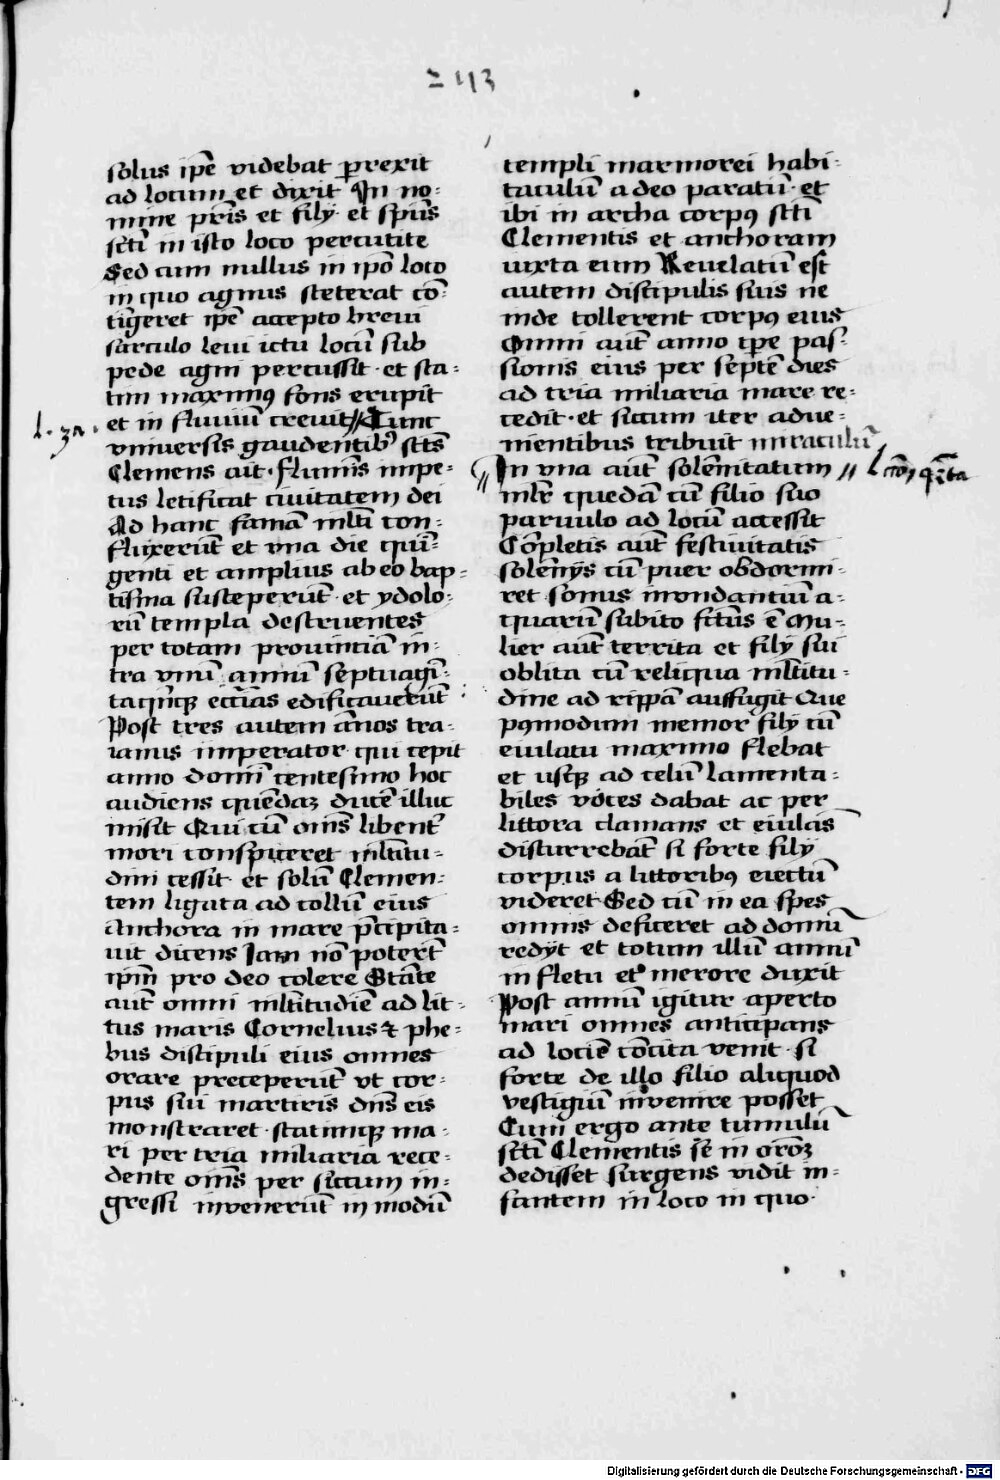 243
solus ip̄e videbat perrexit
ad locum et dixit In no-
mine pr̄is et filij et sp̄us
sc̄ti in isto loco percutite
Sed cum nullus in ip̄o loco
in quo agnus steterat cō-
tigeret ip̄e accepto brevi
sarculo levi ictu locū sub
pede agni percussit · et sta-
tim maximꝰ fons erupit
et in fluviū crevit // Tunc
l. 3a.
vniversis gaudentibꝰ sc̄ts
Clemens aūt · flumīs impe-
tus letificat civitatem dei
Ad hanc famā ml̄ti con-
fluxerūt et vna die quī-
genti et amplius ab eo bap-
tisma susceperūt · et ydolo-
rū templa destruentes
per totam provinciā in-
tra vnū annū septuagī-
taqīqꝫ ecc̄ias edificaverūt
Post tres autem ānos tra-
ianus imperator qui cepit
anno domī centesimo hoc
audiens quēdaꝫ ducē illuc
misit Qui cū om̄s libent̄
mori conspiceret ml̄titu-
dini cessit · et solū Clemen-
tem ligata ad collū eius
Anchora in mare p̄cipita-
vit dicens Iam nō poterūt
ip̄m pro deo colere Stāte
aūt omni ml̄titudīe ad lit-
tus maris Cornelius ⁊ phe-
bus discipuli eius omnes
orare preceperūt vt cor-
pus sui martiris dn̄s eis
monstraret · statimqꝫ ma-
ri per tria miliaria rece-
dente om̄s per siccum in-
gressi invenerūt in modū
templi marmorei habi-
taculū a deo paratū · et
ibi in archa corpꝰ sc̄ti
Clementis et anchoram
iuxta eum Revelatū est
autem discipulis suis ne
inde tollerent corpꝰ eius
Omni aūt anno tp̄e pas-
sionis eius per septē dies
ad tria miliaria mare re-
cedit · et siccum iter adve-
nientibus tribuit miraculū
In vna aūt solēnitatum // l
mlr̄ quedā cū filio suo
parvulo ad locū accessit
Cōpletis aūt festivitatis
solēnijs cū puer obdormi-
ret sonus inondantiū a-
quarū subito fc̄tus ē Mu-
lier aūt territa et filij sui
oblita cū reliqua ml̄titu-
dine ad rippā auffugit Que
pꝰmodum memor filij cū
eiulatu maximo flebat
et usqꝫ ad celū lamenta-
biles voces dabat ac per
littora clamans et eiulās
discurrebat si forte filij
corpus a littoribꝰ eiectū
videret Sed cū in ea spes
omnis deficeret ad domū
redijt et totum illū annū
in fletu et merore duxit
Post annū igitur aperto
mari omnes anticipans
ad locū cōcita venit · si
forte de illo filio aliquod
vestigiū invenire posset
Cum ergo ante tumulū
sc̄ti Clementis se in orōꝫ
dedisset surgens vidit in-
fantem in loco in quo ·
Digitalisierung gefördert durch die Deutsche Forschungsgemeinschaft - DFG